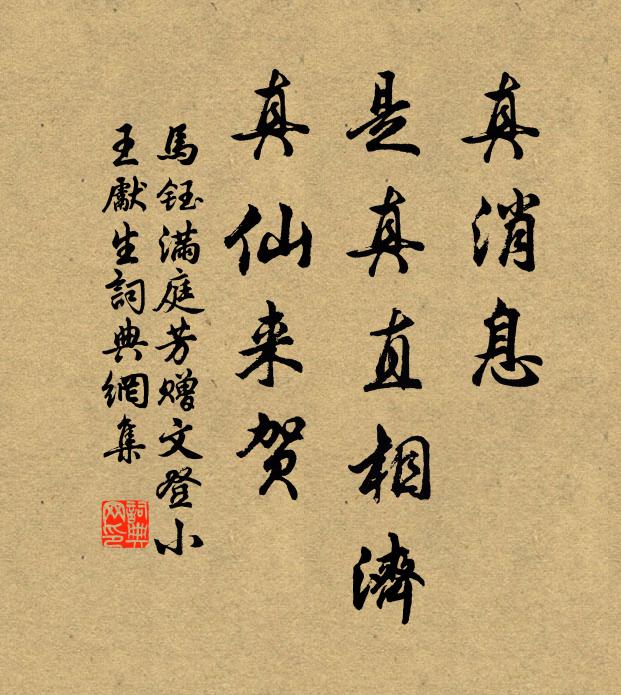 真消息
是真直相濟
真仙来贺
馬鈺滿庭芳贈文登小
王獻生詞典網集
詞典網印